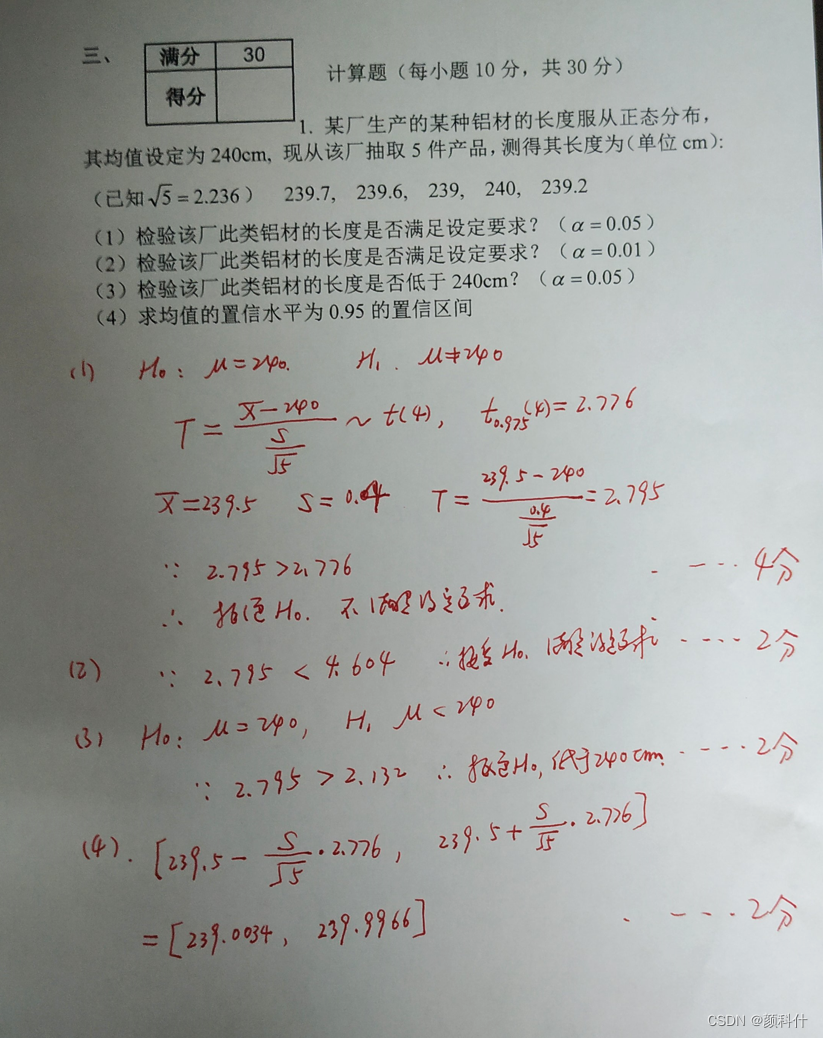 三、
满分 30
得分
计算题（每小题10分，共30分）
1. 某厂生产的某种铝材的长度服从正态分布，
其均值设定为240cm, 现从该厂抽取5件产品，测得其长度为（单位cm）：
（已知√5 = 2.236） 239.7, 239.6, 239, 240, 239.2
（1）检验该厂此类铝材的长度是否满足设定要求？（α = 0.05）
（2）检验该厂此类铝材的长度是否满足设定要求？（α = 0.01）
（3）检验该厂此类铝材的长度是否低于240cm？（α = 0.05）
（4）求均值的置信水平为0.95的置信区间
(1) H₀: μ=240. H₁. μ≠240
T = (x̄-240)/(S/√5) ~ t(4), t₀.₉₇₅(4)=2.776
x̄=239.5 S=0.4 T=(239.5-240)/(0.4/√5)=2.795
∵ 2.795>2.776 . - --- 4分
∴ 拒绝H₀. 不满足设定要求.
(2) ∵ 2.795 < 4.604 ∴接受H₀. 满足设定要求 ---- 2分
(3) H₀: μ=240, H₁ μ<240
∵ 2.795 > 2.132 ∴ 拒绝H₀, 低于240cm. ---- 2分
(4). [239.5 - S/√5 · 2.776, 239.5 + S/√5 · 2.776]
= [239.0034, 239.9966] . - --- 2分
CSDN @颜科什